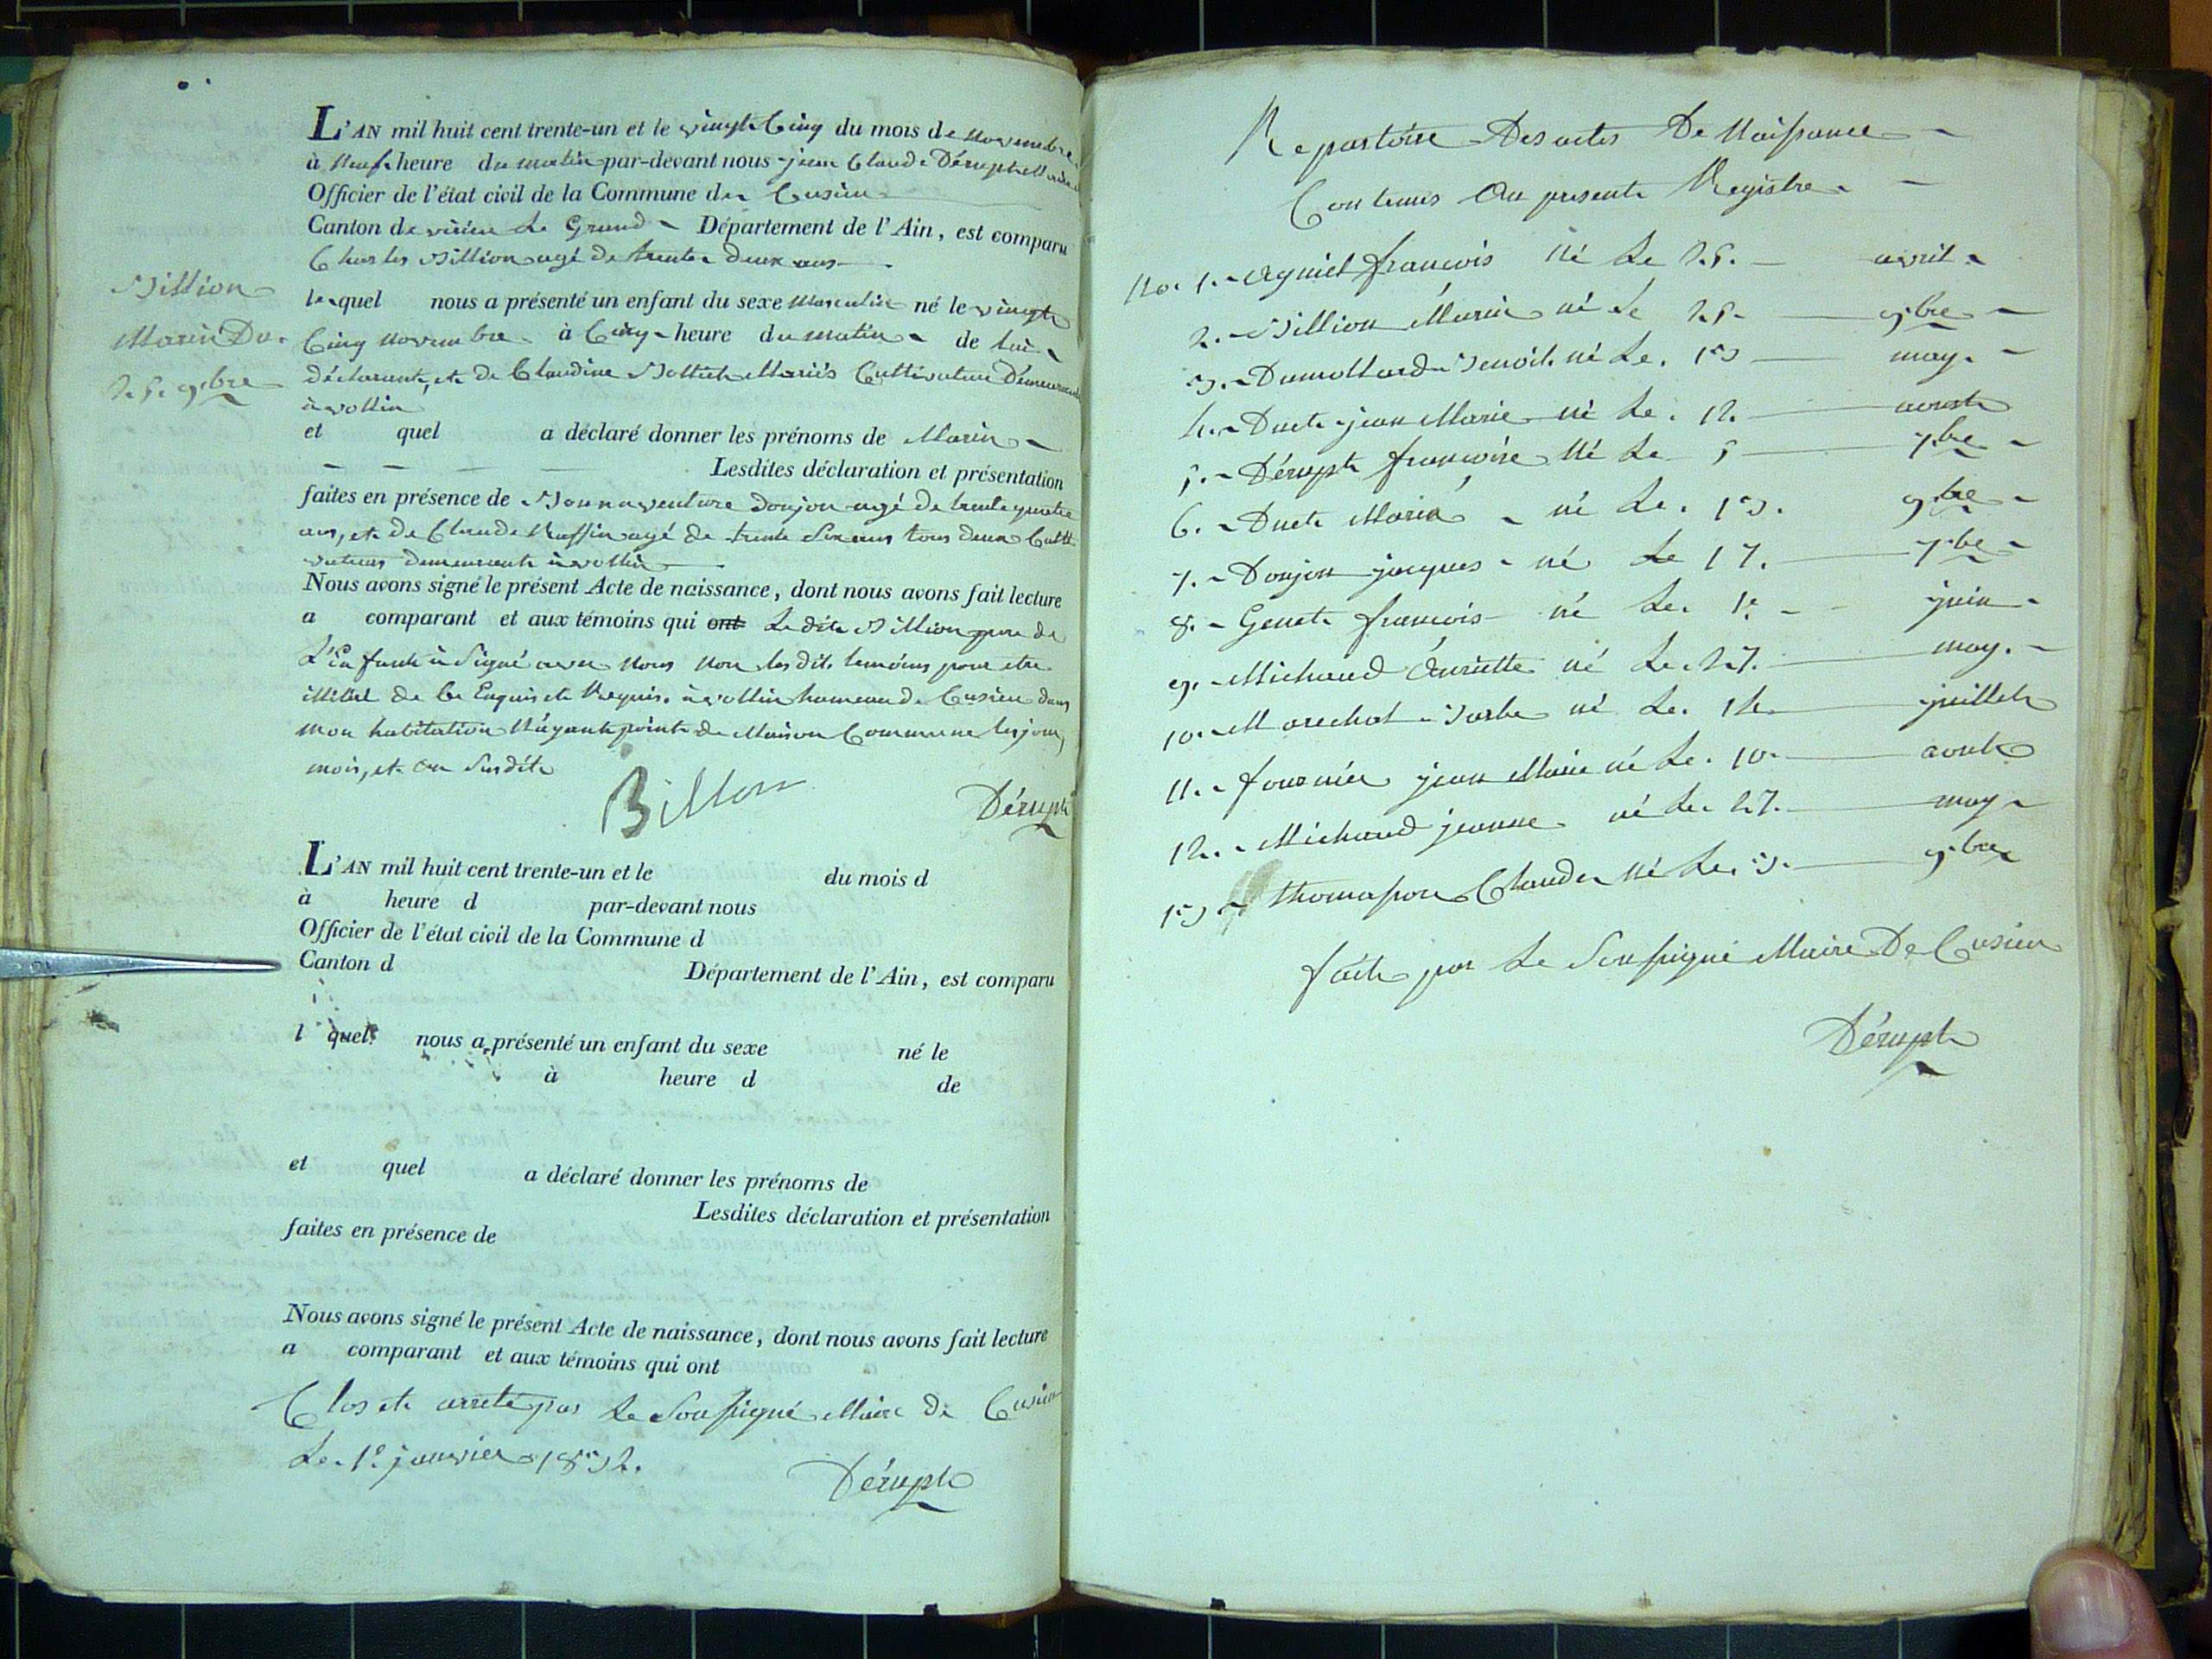 L'AN mil huit cent trente-un et le vingt Cinq du mois de novembre
à Neuf heure du matin par-devant nous jean Claude Dérupt Maire
Officier de l'état civil de la Commune de Cusieu
Canton de virieu Le Grand Département de l'Ain, est comparu
Charles Billion agé de trente deux ans
lequel nous a présenté un enfant du sexe Masculin né le vingt
Cinq novembre à Cinq heure du matin de lui
déclarant, et de Claudine Mariés Cultivateur Demeurant
à vollin
et quel a déclaré donner les prénoms de Marin
Lesdites déclaration et présentation
faites en présence de Bonnaventure Donjon agé de trente quatre
ans, et de Claude Ruffin agé de trente Six ans tous deux Culti
vateurs demeurant à vollin
Nous avons signé le présent Acte de naissance, dont nous avons fait lecture
a comparant et aux témoins qui ont Le dit Billion pere de
L'Enfant à Signé avec Nous Non les dits temoins pour etre
de Ce Enquis et Requis. à vollin hameau de Cusieu dans
mon habitation N'ayant point de Maison Commune les jour,
mois, et an Susdits
Billion
Dérupt
Billion
Marin Du
25. 9bre
L'AN mil huit cent trente-un et le du mois d
à heure d par-devant nous
Officier de l'état civil de la Commune d
Canton d Département de l'Ain, est comparu
l quel nous a présenté un enfant du sexe né le
à heure d de
et quel a déclaré donner les prénoms de
Lesdites déclaration et présentation
faites en présence de
Nous avons signé le présent Acte de naissance, dont nous avons fait lecture
a comparant et aux témoins qui ont
Clos et arreté par Le Soussigné Maire de Cusieu
Le 1e janvier 1832.
Dérupt
Repartoire Des actes De Naissance
Contenus Au present Registre
No. 1. Agniel françois Né Le 25. avril
2. Billion Marin né Le 25. 9bre
3. Dumollard Benoit né Le. 13 may.
4. Duet jean Marie né Le. 12. aoust
5. Dérupt françoise Né Le 5 7bre
6. Duet Maria né Le. 13. 9bre
7. Donjon jacques né Le 17. 7bre
8. Genet françois né Le. 1e juin
9. Michaud Enriette né Le. 27. may.
10. Marechal Barbe né Le. 14. juillet
11. fournier jean Marie né Le. 10. aout
12. Michaud jeanne né Le. 27. may
13 thomasson Claude Né Le. 3. 9bre
fait par Le Soussigné Maire De Cusieu
Dérupt